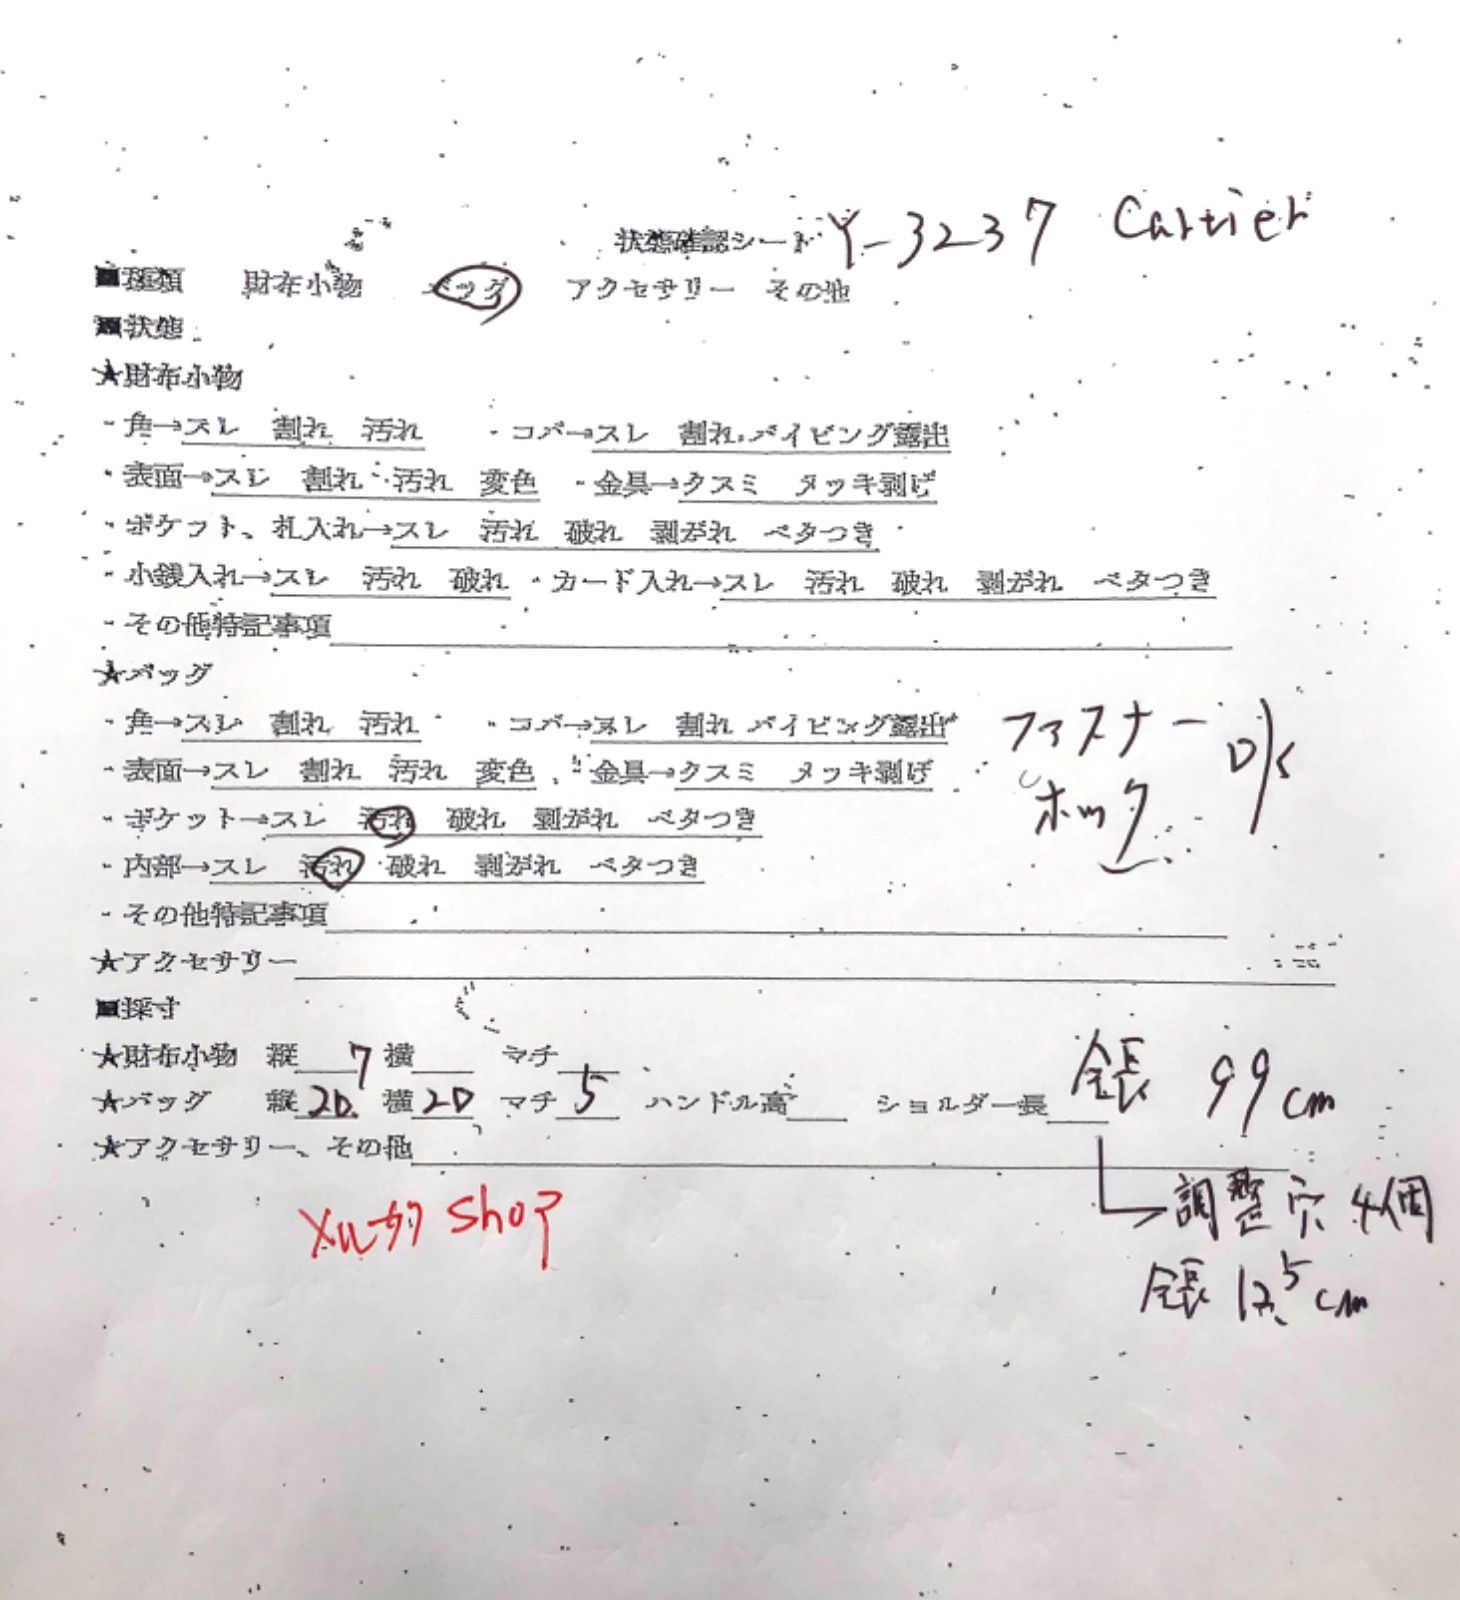 状態確認シート Y-3237 Cartier
■種類 財布小物 バッグ アクセサリー その他
■状態
★財布小物
・角→スレ 割れ 汚れ ・コバ→スレ 割れ パイピング露出
・表面→スレ 割れ 汚れ 変色 ・金具→クスミ メッキ剥げ
・ポケット、札入れ→スレ 汚れ 破れ 剥がれ ベタつき
・小銭入れ→スレ 汚れ 破れ ・カード入れ→スレ 汚れ 破れ 剥がれ ベタつき
・その他特記事項
★バッグ
・角→スレ 割れ 汚れ ・コバ→スレ 割れ パイピング露出
ファスナー
・表面→スレ 割れ 汚れ 変色 ・金具→クスミ メッキ剥げ
ホック
・ポケット→スレ 汚れ 破れ 剥がれ ベタつき
・内部→スレ 汚れ 破れ 剥がれ ベタつき
・その他特記事項
★アクセサリー
■採寸
★財布小物 縦 7 横 マチ
★バッグ 縦 20. 横 20 マチ 5 ハンドル高 ショルダー長 全長 99cm
★アクセサリー、その他
調整穴 4個
メルカリ shop
全長 12.5cm